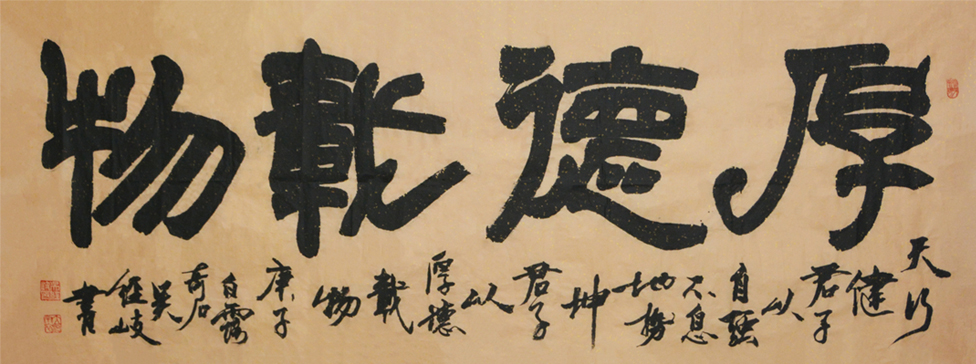 厚德載物
天行
健
君子
以
自強
不息
地勢
坤
君子
以
厚德
載
物
庚子
白露
奇石
吴
經岐
書